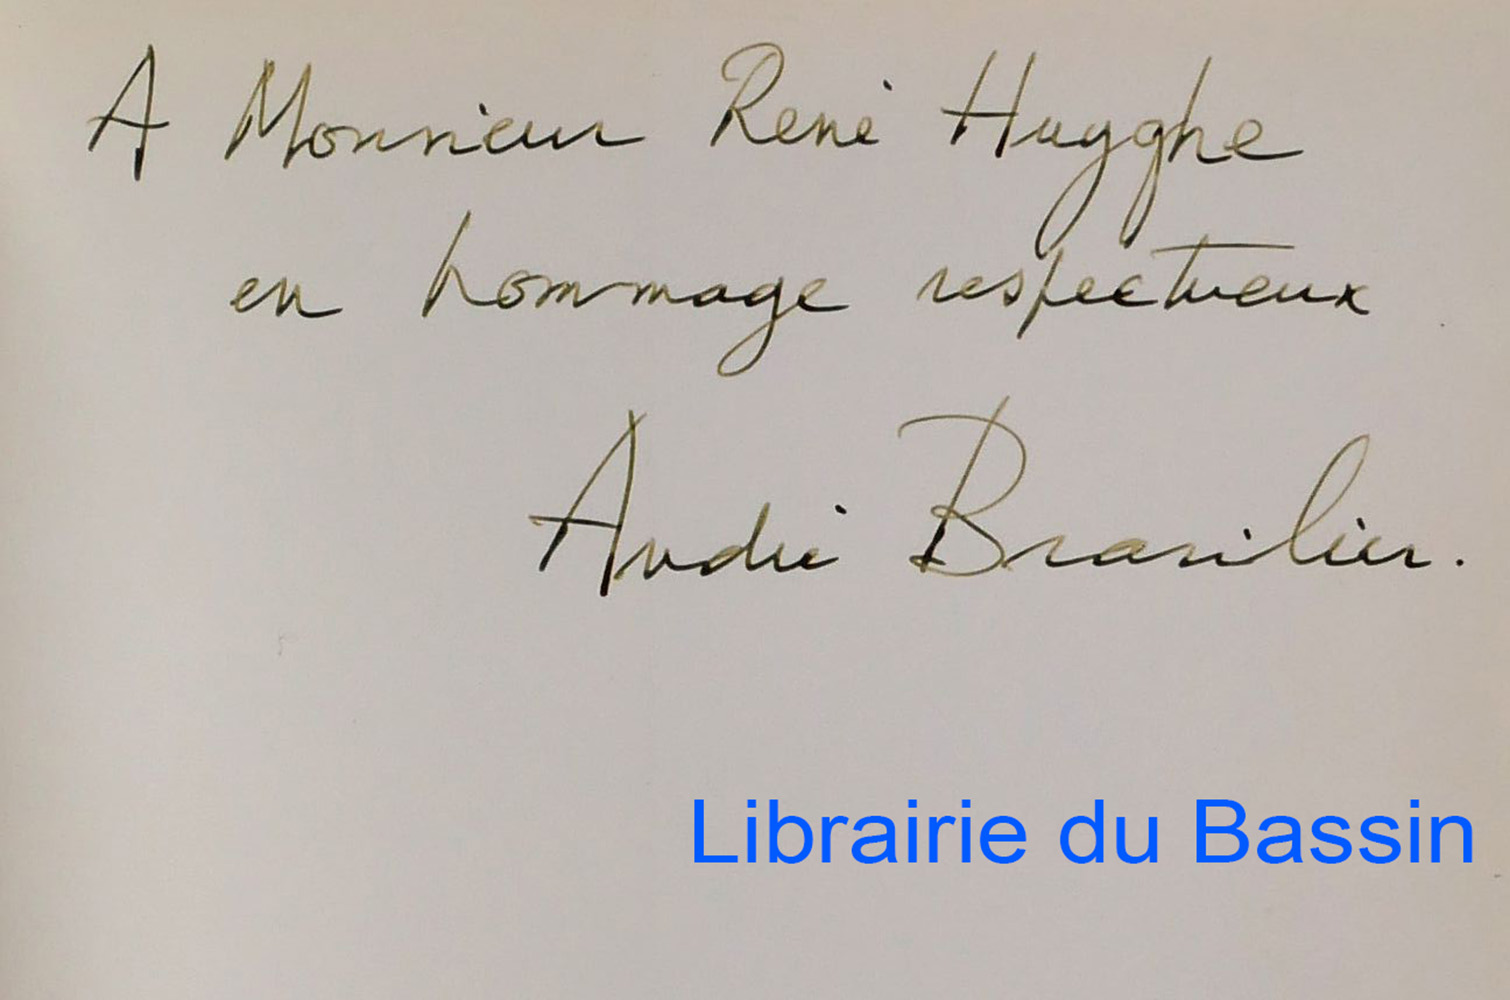 A Monsieur René Huyghe
en hommage respectueux
André Brasilier.
Librairie du Bassin